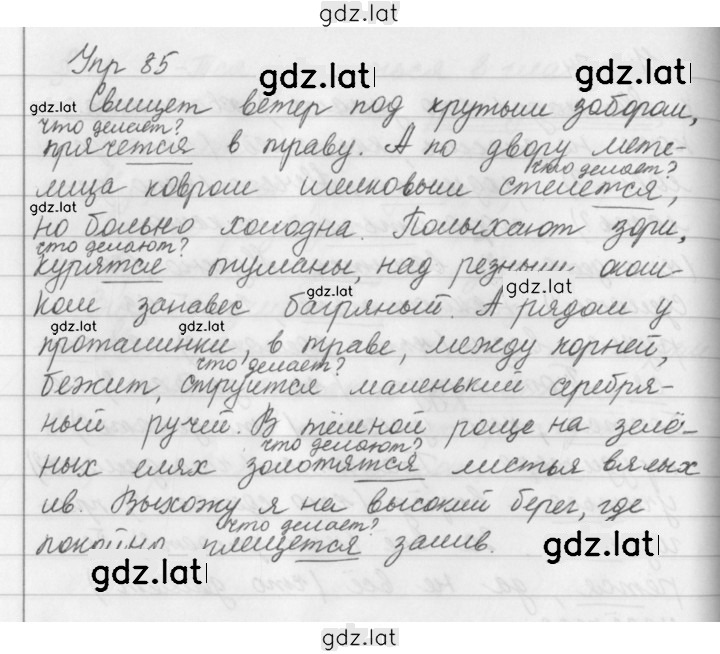 gdz.lat
Упр 85
gdz.lat
gdz.lat
gdz.lat
Свищет ветер под крутым забором,
что делает?
прячется в траву. А по двору мете-
что делает?
лица ковром шелковым стелется,
gdz.lat
но больно холодна. Полыхают зори,
что делают?
курятся туманы, над резным окош-
gdz.lat
gdz.lat
ком занавес багряный. А рядом у
gdz.lat
gdz.lat
проталинки, в траве, между корней,
что делает?
бежит, струится маленький серебря-
ный ручей. В тёмной роще на зелё-
что делают?
ных елях золотятся листья вялых
ив. Выхожу я на высокий берег, где
что делает?
покойно плещется залив.
gdz.lat
gdz.lat
gdz.lat